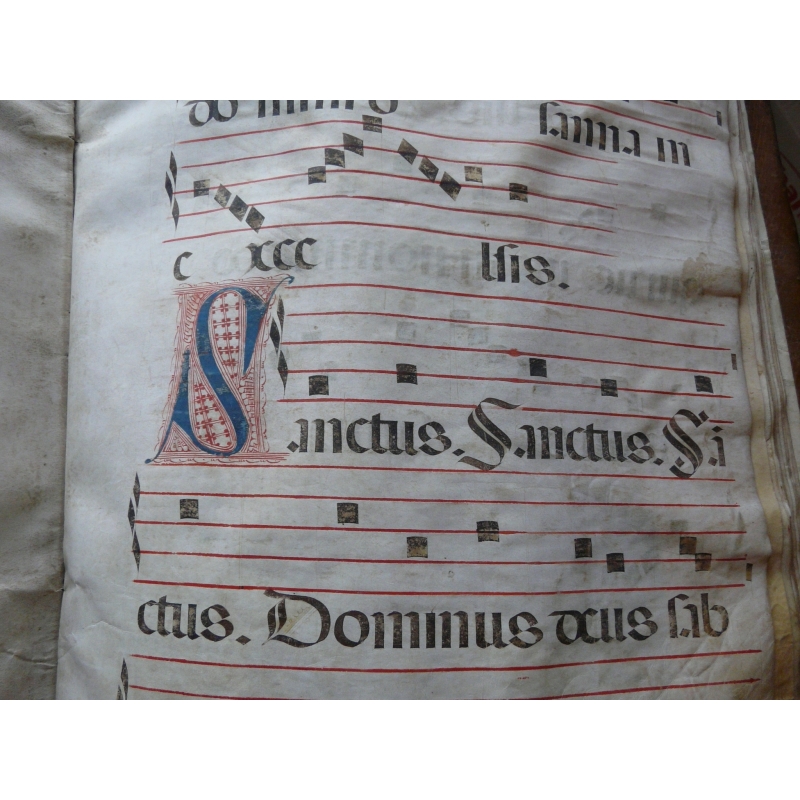 do mini o sanna in
e xce lsis.
Sanctus. Sanctus. Sa
ctus. Dominus deus sab